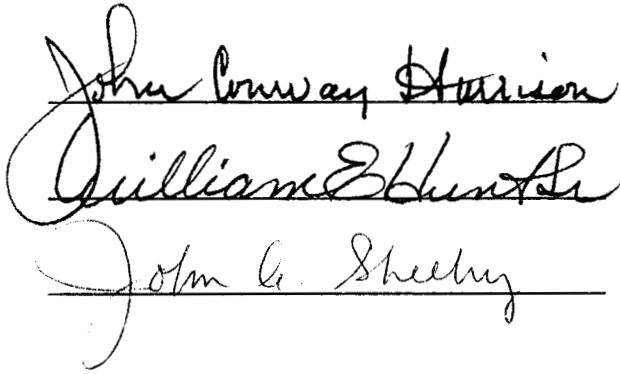 John Conway Harrison
William E Hunt Sr
John C. Sheehy